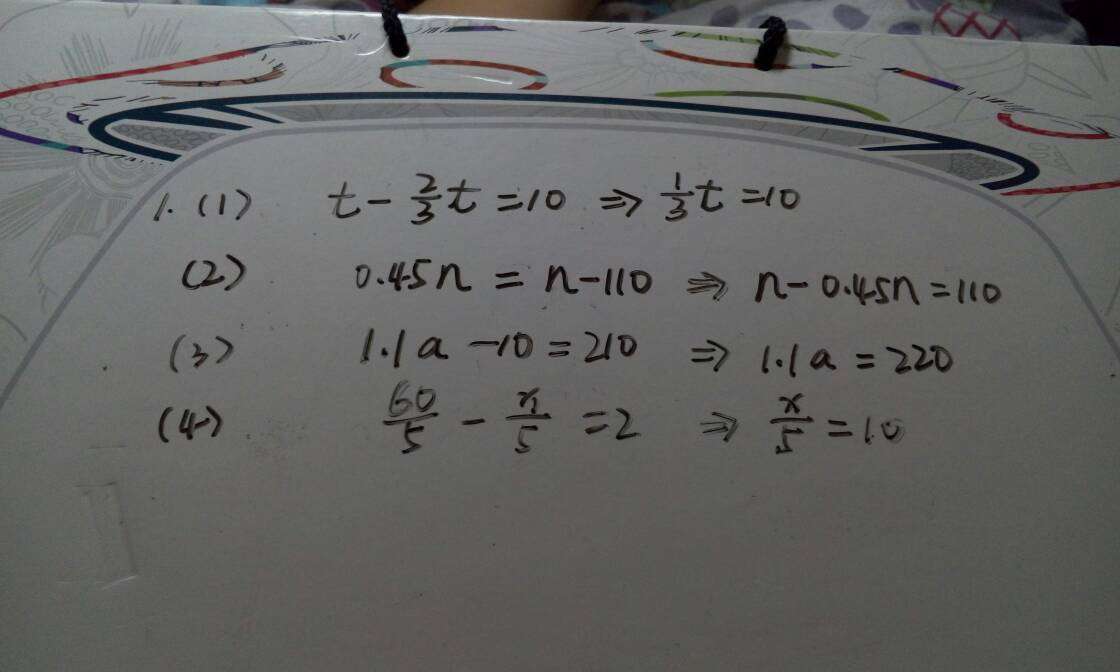 1. (1) t - 2/3 t = 10 ⇒ 1/3 t = 10
(2) 0.45n = n - 110 ⇒ n - 0.45n = 110
(3) 1.1a - 10 = 210 ⇒ 1.1a = 220
(4) 60/5 - x/5 = 2 ⇒ x/5 = 10